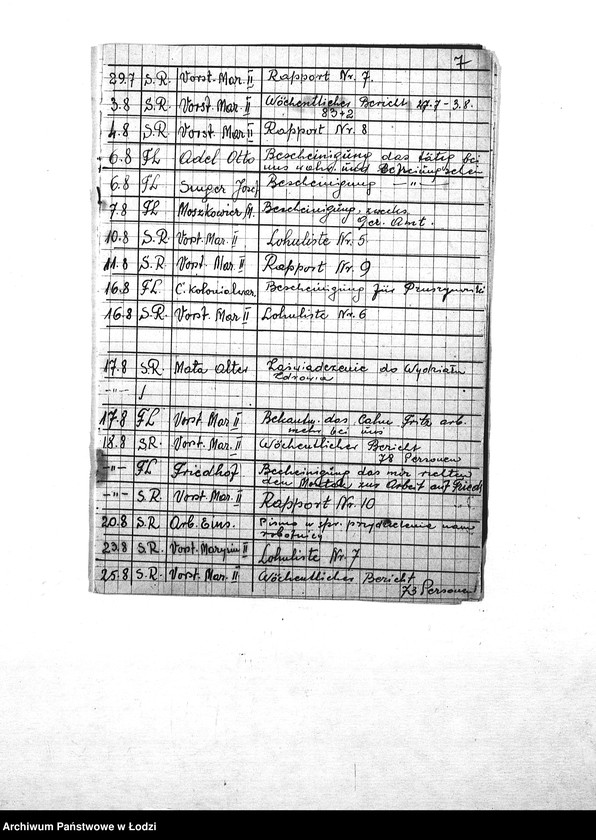 7
29.7 S.R. Vorst. Mar. II Rapport Nr. 7.
3.8 S.R. Vorst. Mar. II Wöchentlicher Bericht 27.7 - 3.8.
83+2
4.8 S.R. Vorst. Mar II Rapport Nr. 8
6.8 FL Adel Otto Bescheinigung das tätig bei
uns und
6.8 FL Singer Josef Bescheinigung —"—
7.8 FL Bescheinigung, zwecks
Ger. Amt.
10.8 S.R. Vorst. Mar. II Lohnliste Nr. 5
11.8 S.R. Vorst. Mar. II Rapport Nr. 9
16.8 FL. C. Kolonialwar. Bescheinigung für
16.8 S.R. Vorst. Mar II Lohnliste Nr. 6
17.8 S.R. Mata Alter Zaświadczenie do Wydziału
Zdrowia
—"—
17.8 FL Vorst. Mar. II das Cahn Fritz arb.
mehr bei uns
18.8 S.R. Vorst. Mar. II Wöchentlicher Bericht
78 Personen
—"— FL Friedhof Becheinigung das
den zur Arbeit auf Friedh
—"— S.R. Vorst. Mar. II Rapport Nr. 10
20.8 S.R. Arb. Eins. Pismo w spr. nam
robotnicy
23.8 S.R. Vorst. Marysin II Lohnliste Nr. 7
25.8 S.R. Vorst. Mar. II Wöchentlicher Bericht
73 Personen
Archiwum Państwowe w Łodzi